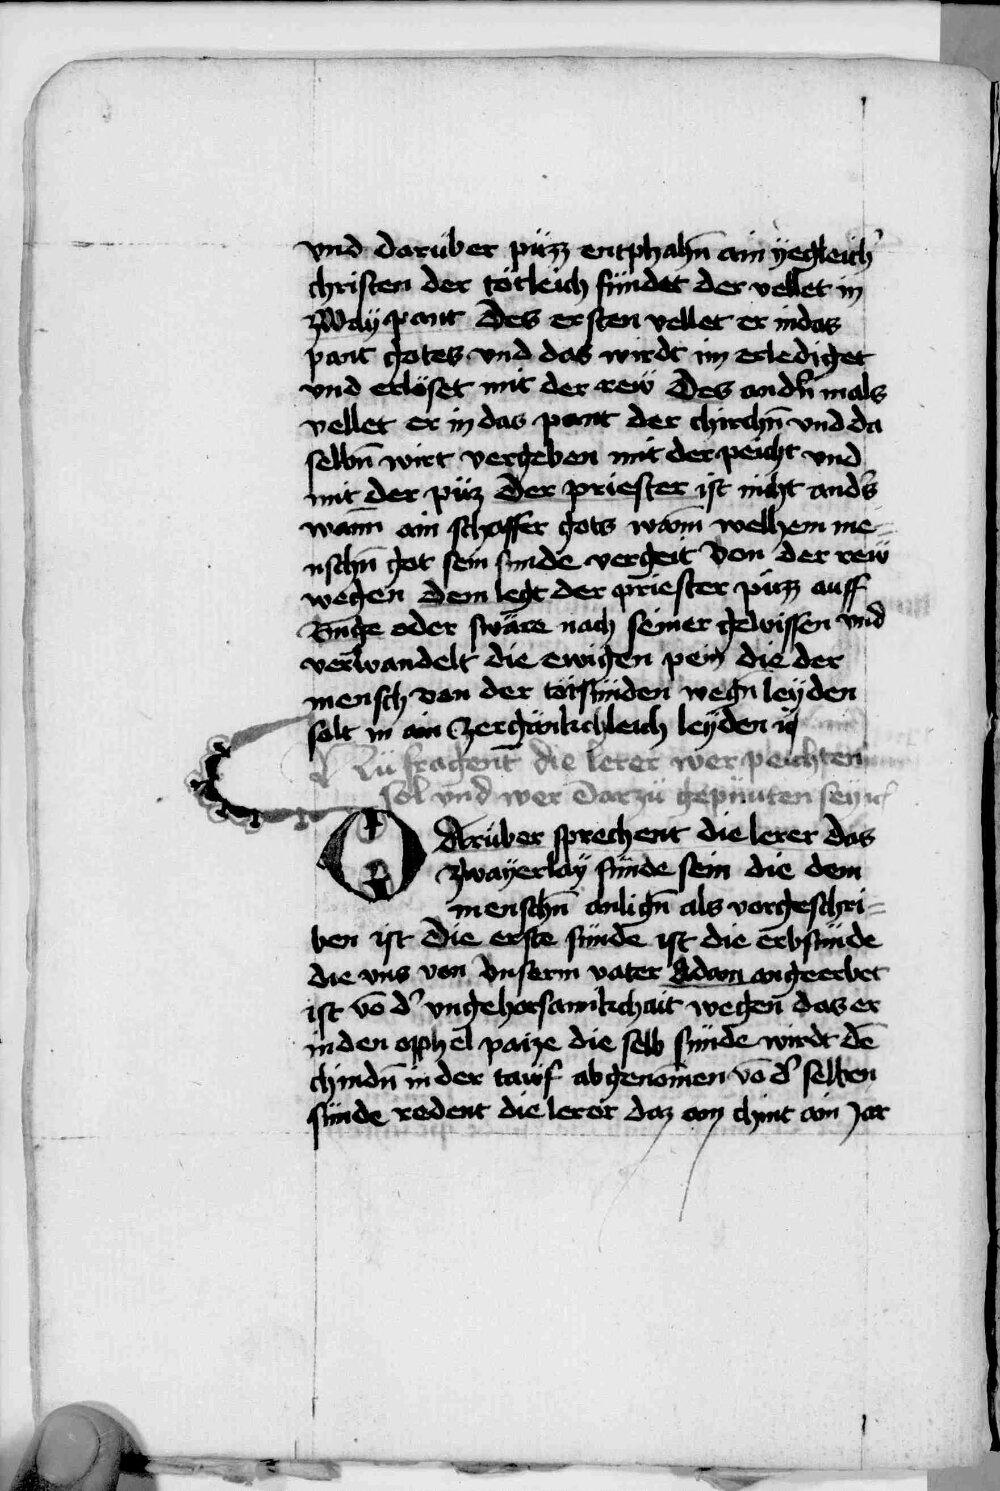 vnd darüber püzz entphahn̄ ain yegleich'
christen der tötleich sündet der vellet in
zway pant Des ersten vellet er in das
pant gotes vnd das wirdt im erlediget
vnd erlöset mit der rew Des andn̄ mals
vellet er in das pant der chirchn̄ vnd da
selbn̄ wirt vergeben mit der peicht vnd
mit der püz Der priester ist nicht ands
wann ain schaffer gots wann welhem me-
nschn̄ got sein sunde vergeit von der rew
wegen dem legt der priester püzz auff
Ringe oder swäre nach seiner gewissen vnd
verwandelt die ewigen pein die der
mensch von der totsünden wegn̄ leyden
solt in ain zergänkchleich leyden
Nu fragent die lerer wer peichten
sol vnd wer darzu gepunten sey
Darüber sprechent die lerer das
zwayerlay sünde sein die dem
menschn̄ anlign̄ als vorgeschri-
ben ist Die erste sünde ist die erbsünde
die vns von vnserm vater Adam angeerbet
ist vō d' vngehorsamkchait wegen das er
in den opphel paize die selb sünde wirdt dē
chindn̄ in der tawf abgenomen vō d' selben
sünde redent die lerer daz ain chint ain Jar